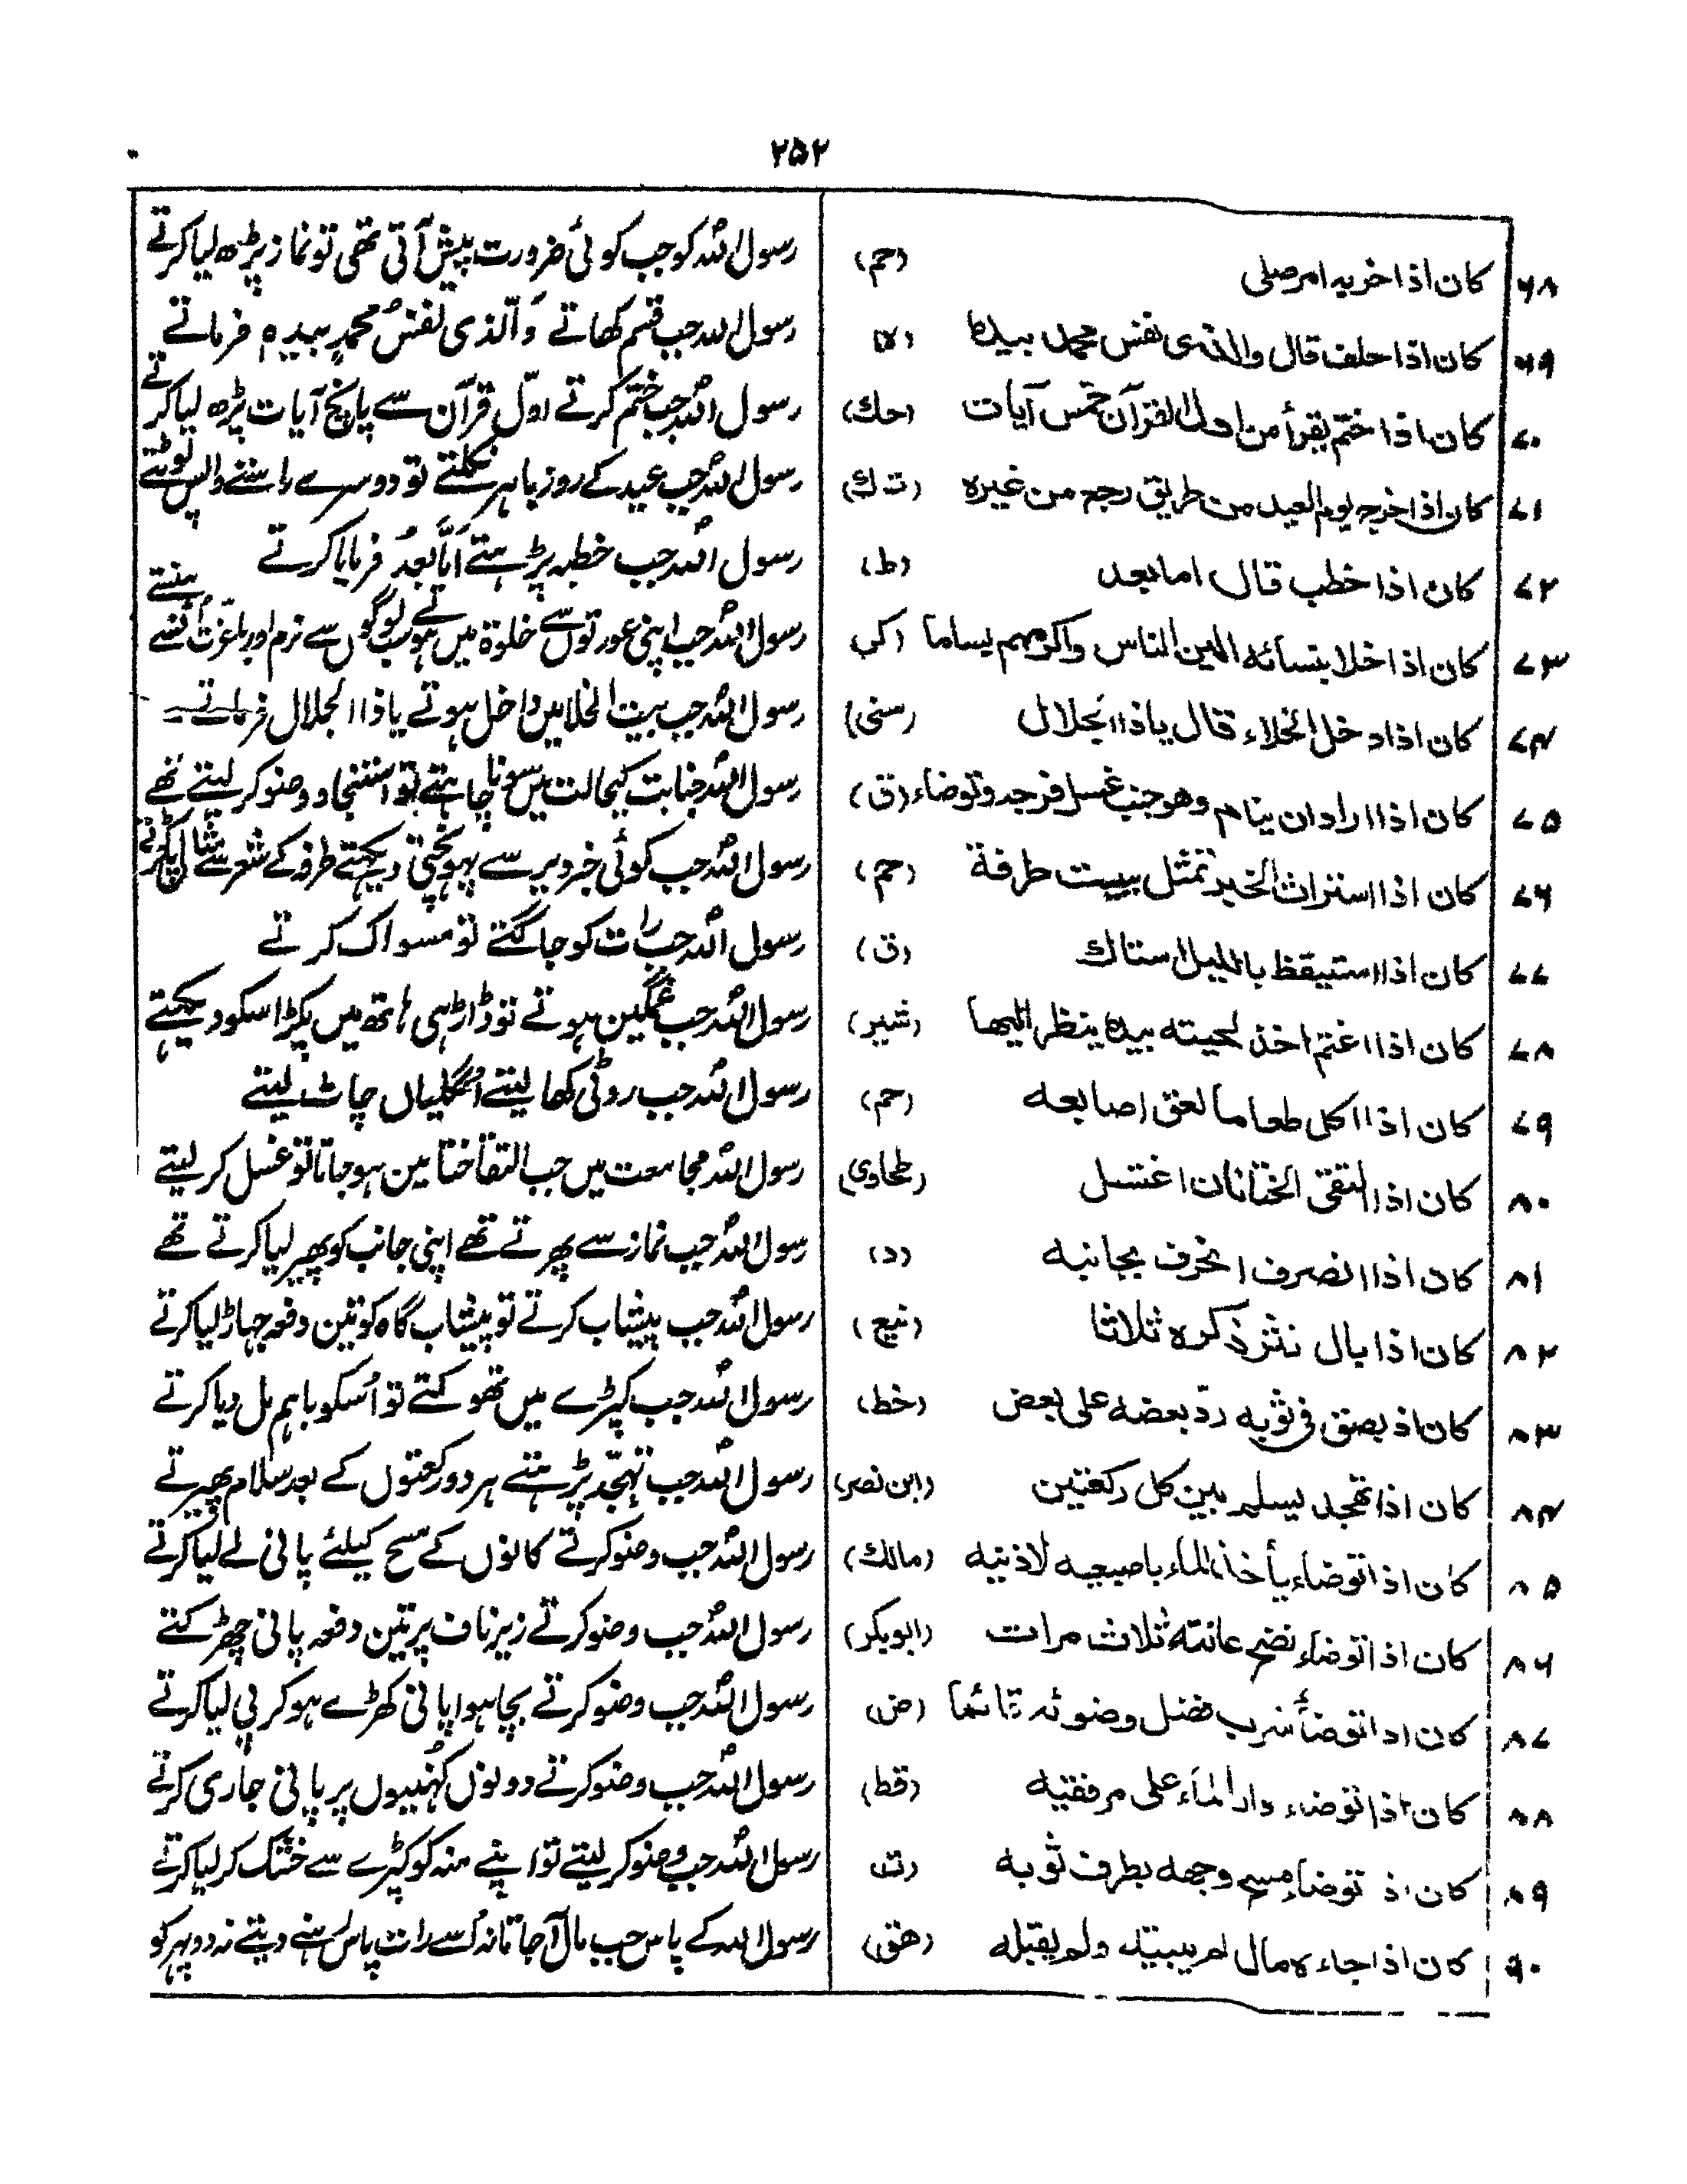 ۲۵۲
۶۸ کان اذا خربہ امر صلی (حم) رسول اللہ کو جب کوئی ضرورت پیش آتی تھی تو نماز پڑھ لیا کرتے
۶۹ کان اذا حلف قال والذی نفس محمد بیدہ (ہ) رسول اللہ جب قسم کھاتے وَالّذی نفسُ محمدٍ بیدہ فرماتے
۷۰ کان اذا ختم یقرأ من اول القرآن خمس آیات (حك) رسول اللہ جب ختم کرتے اوّل قرآن سے پانچ آیات پڑھ لیا کرتے
۷۱ کان اذا خرج یوم العید من طریق رجع من غیرہ (ت ك) رسول اللہ جب عید کے روز باہر نکلتے تو دوسرے راستے واپس لوٹتے
۷۲ کان اذا خطب قال امابعد (ط) رسول اللہ جب خطبہ پڑہتے اَمَّا بعدُ فرمایا کرتے
۷۳ کان اذا خلا بنسائه الین الناس واکرمهم بساما (کر) رسول اللہ جب اپنی عورتوں سے خلوۃ میں ہوتے سب لوگوں سے نرم اور باعزت اُنسے ہنستے
۷۴ کان اذا دخل الخلاء قال یاذا الجلال (سنی) رسول اللہ جب بیت الخلا میں داخل ہوتے یاذا الجلال فرماتے
۷۵ کان اذا اراد ان ینام وهو جنب غسل فرجه وتوضاء (ق) رسول اللہ جنابت کیحالت میں سونا چاہتے تو استنجا و وضو کر لیتے تھے
۷۶ کان اذا استراث الخبر تمثل ببیت طرفة (حم) رسول اللہ جب کوئی خبر دیر سے پہونچتی دیکہتے طرفہ کے شعر سے مثال پکڑتے
۷۷ کان اذا استیقظ باللیل استاك (ق) رسول اللہ جب رات کو جاگتے تو مسواک کرتے
۷۸ کان اذا اغتم اخذ لحیته بیدہ ینظر الیها (شیر) رسول اللہ جب غمگین ہوتے تو ڈاڑہی ہاتھ میں پکڑا سکو دیکہتے
۷۹ کان اذا اکل طعاما لعق اصابعه (حم) رسول اللہ جب روٹی کھا لیتے اُنگلیاں چاٹ لیتے
۸۰ کان اذا التقی الختانان اغتسل (طحاوی) رسول اللہ مجامعت میں جب التقأ ختانین ہو جاتا تو غسل کر لیتے
۸۱ کان اذا انصرف انحرف بجانبه (د) رسول اللہ جب نماز سے پھرتے تھے اپنی جانب کو پھیر لیا کرتے تھے
۸۲ کان اذا بال نثر ذکره ثلاثا (نیع) رسول اللہ جب پیشاب کرتے تو پیشاب گاہ کو تین دفعہ جہاڑ لیا کرتے
۸۳ کان اذ بصق فی ثوبه ردّ بعضه علی بعض (خط) رسول اللہ جب کپڑے میں تھوکتے تو اُسکو باہم مل دیا کرتے
۸۴ کان اذا تهجد یسلم بین کل رکعتین (ابن نصر) رسول اللہ جب تہجّد پڑہتے ہر دو رکعتوں کے بعد سلام پھیرتے
۸۵ کان اذا توضاء یأخذ الماء باصبعیه لاذنیه (مالك) رسول اللہ جب وضو کرتے کانوں کے مسح کیلئے پانی لے لیا کرتے
۸۶ کان اذا توضاء نضح عانته ثلاث مرات (ابوبکر) رسول اللہ جب وضو کرتے زیرناف پر تین دفعہ پانی چھڑکتے
۸۷ کان اذا توضأ شرب فضل وضوئه قائما (ض) رسول اللہ جب وضو کرتے بچا ہوا پانی کھڑے ہو کر پی لیا کرتے
۸۸ کان اذا توضاء دار الماء علی مرفقیه (قط) رسول اللہ جب وضو کرتے دونوں کُہنیوں پر پانی جاری کرتے
۸۹ کان اذ توضا مسح وجهه بطرف ثوبه (ت) رسول اللہ جب وضو کر لیتے تو اپنے منہ کو کپڑے سے خشک کر لیا کرتے
۹۰ کان اذا جاءه مال لم یبیته ولم یقیله (هق) رسول اللہ کے پاس جب مال آ جاتا نہ اُسے رات پاس رہنے دیتے نہ دوپہر کو